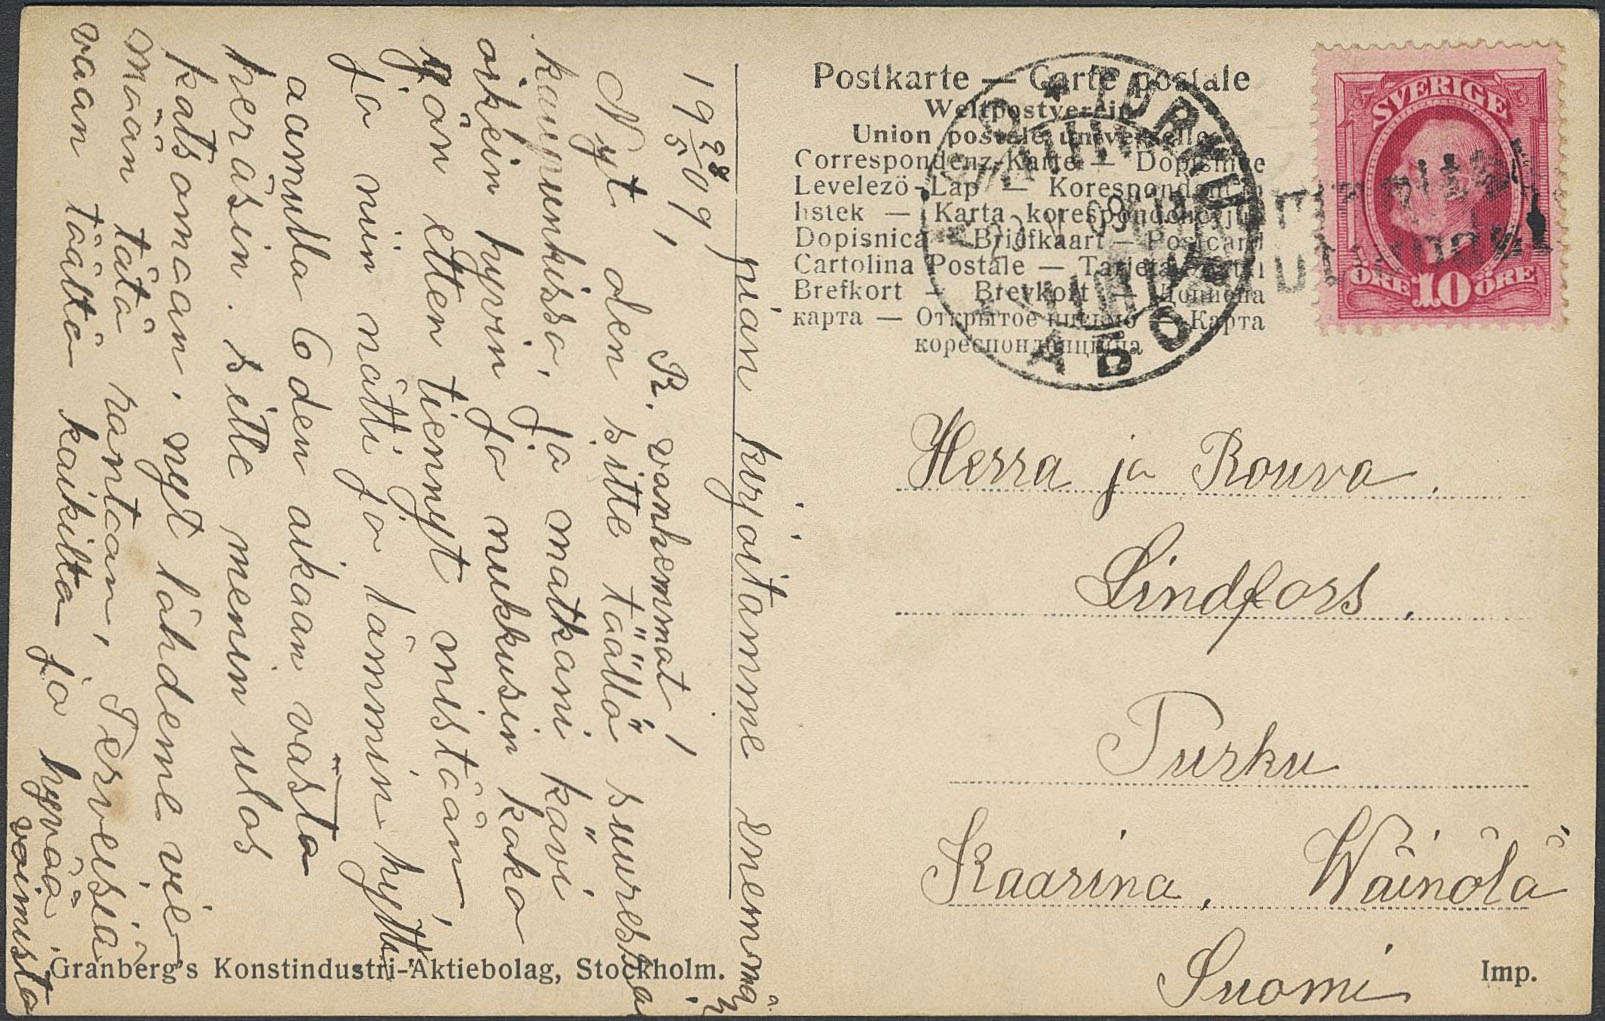 Postkarte — Carte postale
Weltpostverein
Union postale universelle
Correspondenz-Karte — Dopisnice
Levelező-Lap — Korespondenční
listek — Karta korespondencyjna
Dopisnica — Briefkaart — Postcard
Cartolina Postale — Tarjeta postal
Brefkort — Brevkort — Цоппсна
карта — Открытое письмо — Карта
кореспонденцийна
SVERIGE
ÖRE 10 ÖRE
TURKU
ÅBO
АБО
Herra ja Rouva.
Lindfors.
Turku
Kaarina. Wäinölä
Suomi
19 28/5 09,
R. vanhemmat!
Nyt olen sitte täällä suuressa
kaupunkissa, ja matkani kävi
oikein hyvin ja nukkusin koko
yön etten tiennyt mistään,
ja niin nätti ja lämmin hytti
aamulla 6 den aikaan vasta
heräsin. sitte menin ulos
katsomaan. nyt lähdeme vie-
mään tätä rantaan, Terveisiä
vaan täältä kaikilta ja hyvää
voimista
pian kirjoitamme enemmän
Granberg's Konstindustri-Aktiebolag, Stockholm.
Imp.